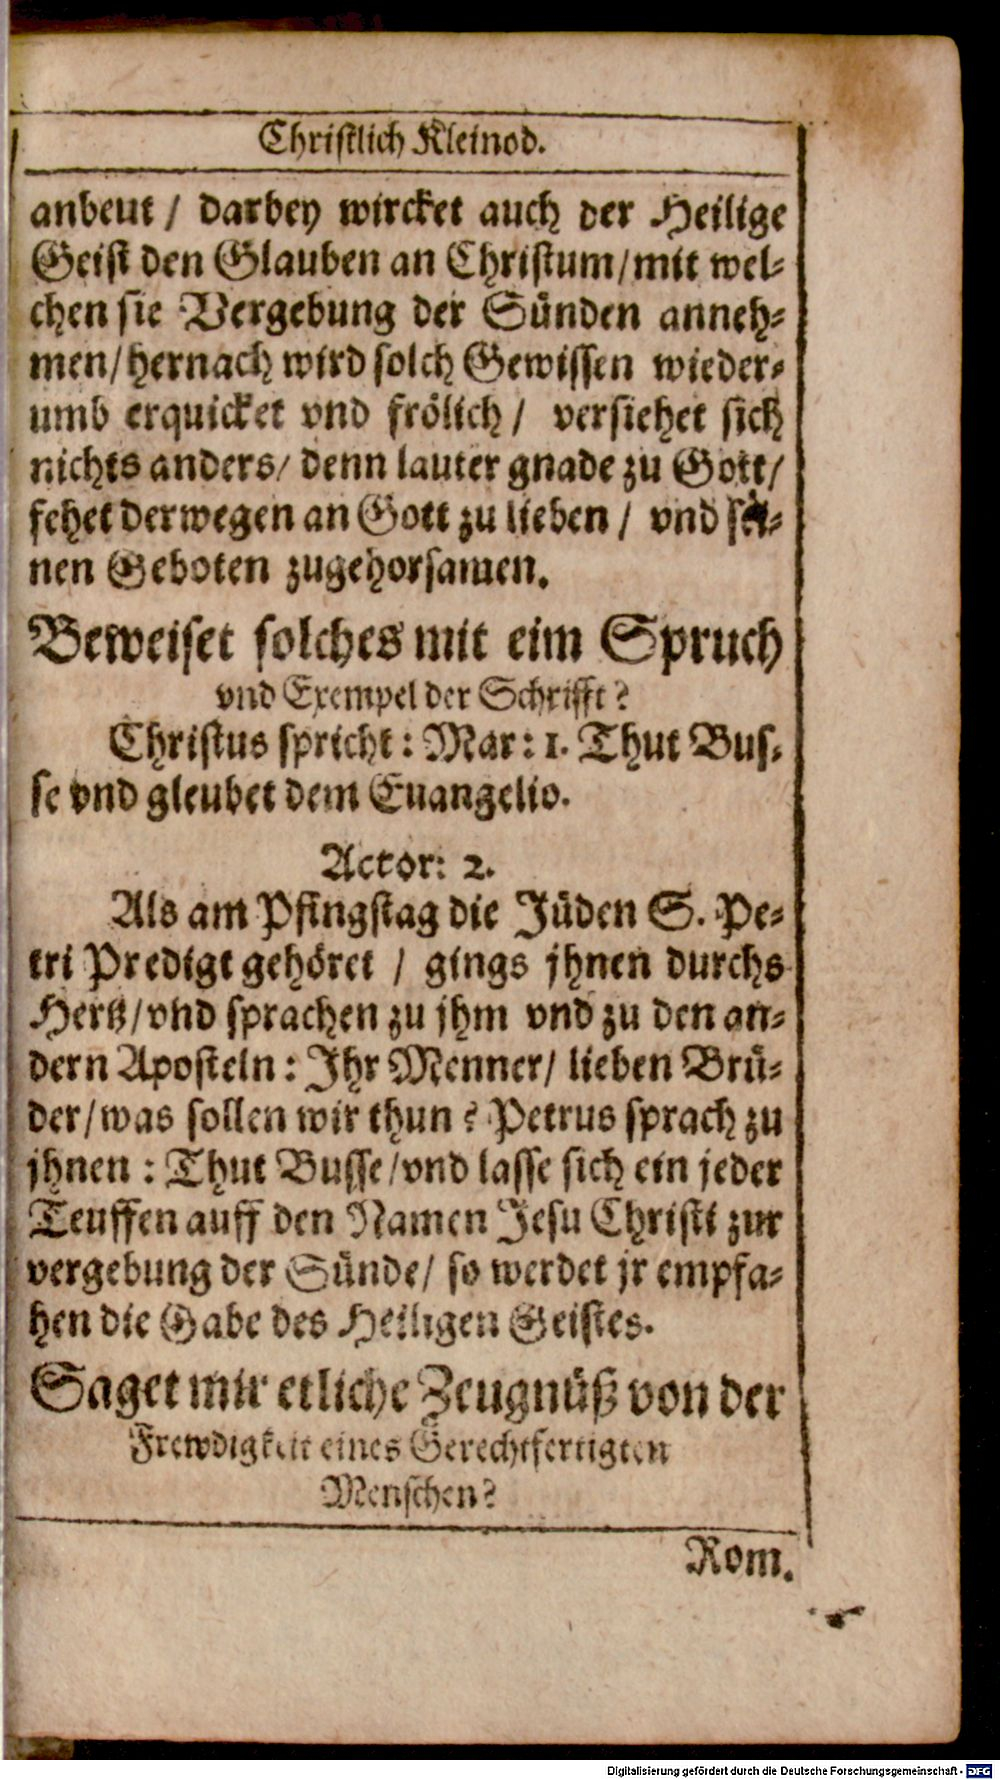 Christlich Kleinod.
anbeut / darbey wircket auch der Heilige
Geist den Glauben an Christum/mit wel-
chen sie Vergebung der Sünden anneh-
men/hernach wird solch Gewissen wieder-
umb erquicket vnd frölich / versiehet sich
nichts anders/ denn lauter gnade zu Gott/
fehet derwegen an Gott zu lieben / vnd sei-
nen Geboten zugehorsamen.
Beweiset solches mit eim Spruch
vnd Exempel der Schrifft?
Christus spricht: Mar: 1. Thut Bus-
se vnd gleubet dem Euangelio.
Actor: 2.
Als am Pfingstag die Jüden S. Pe-
tri Predigt gehöret / gings jhnen durchs
Hertz/vnd sprachen zu jhm vnd zu den an-
dern Aposteln: Ihr Menner/ lieben Brü-
der/was sollen wir thun? Petrus sprach zu
jhnen: Thut Busse/vnd lasse sich ein jeder
Teuffen auff den Namen Jesu Christi zur
vergebung der Sünde/ so werdet jr empfa-
hen die Gabe des Heiligen Geistes.
Saget mir etliche Zeugnüß von der
Frewdigkeit eines Gerechtfertigten
Menschen?
Rom.
Digitalisierung gefördert durch die Deutsche Forschungsgemeinschaft - DFG